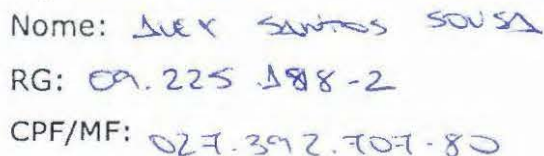 Nome: ALEX SANTOS SOUSA
RG: 09.225.188-2
CPF/MF: 027.392.707-80